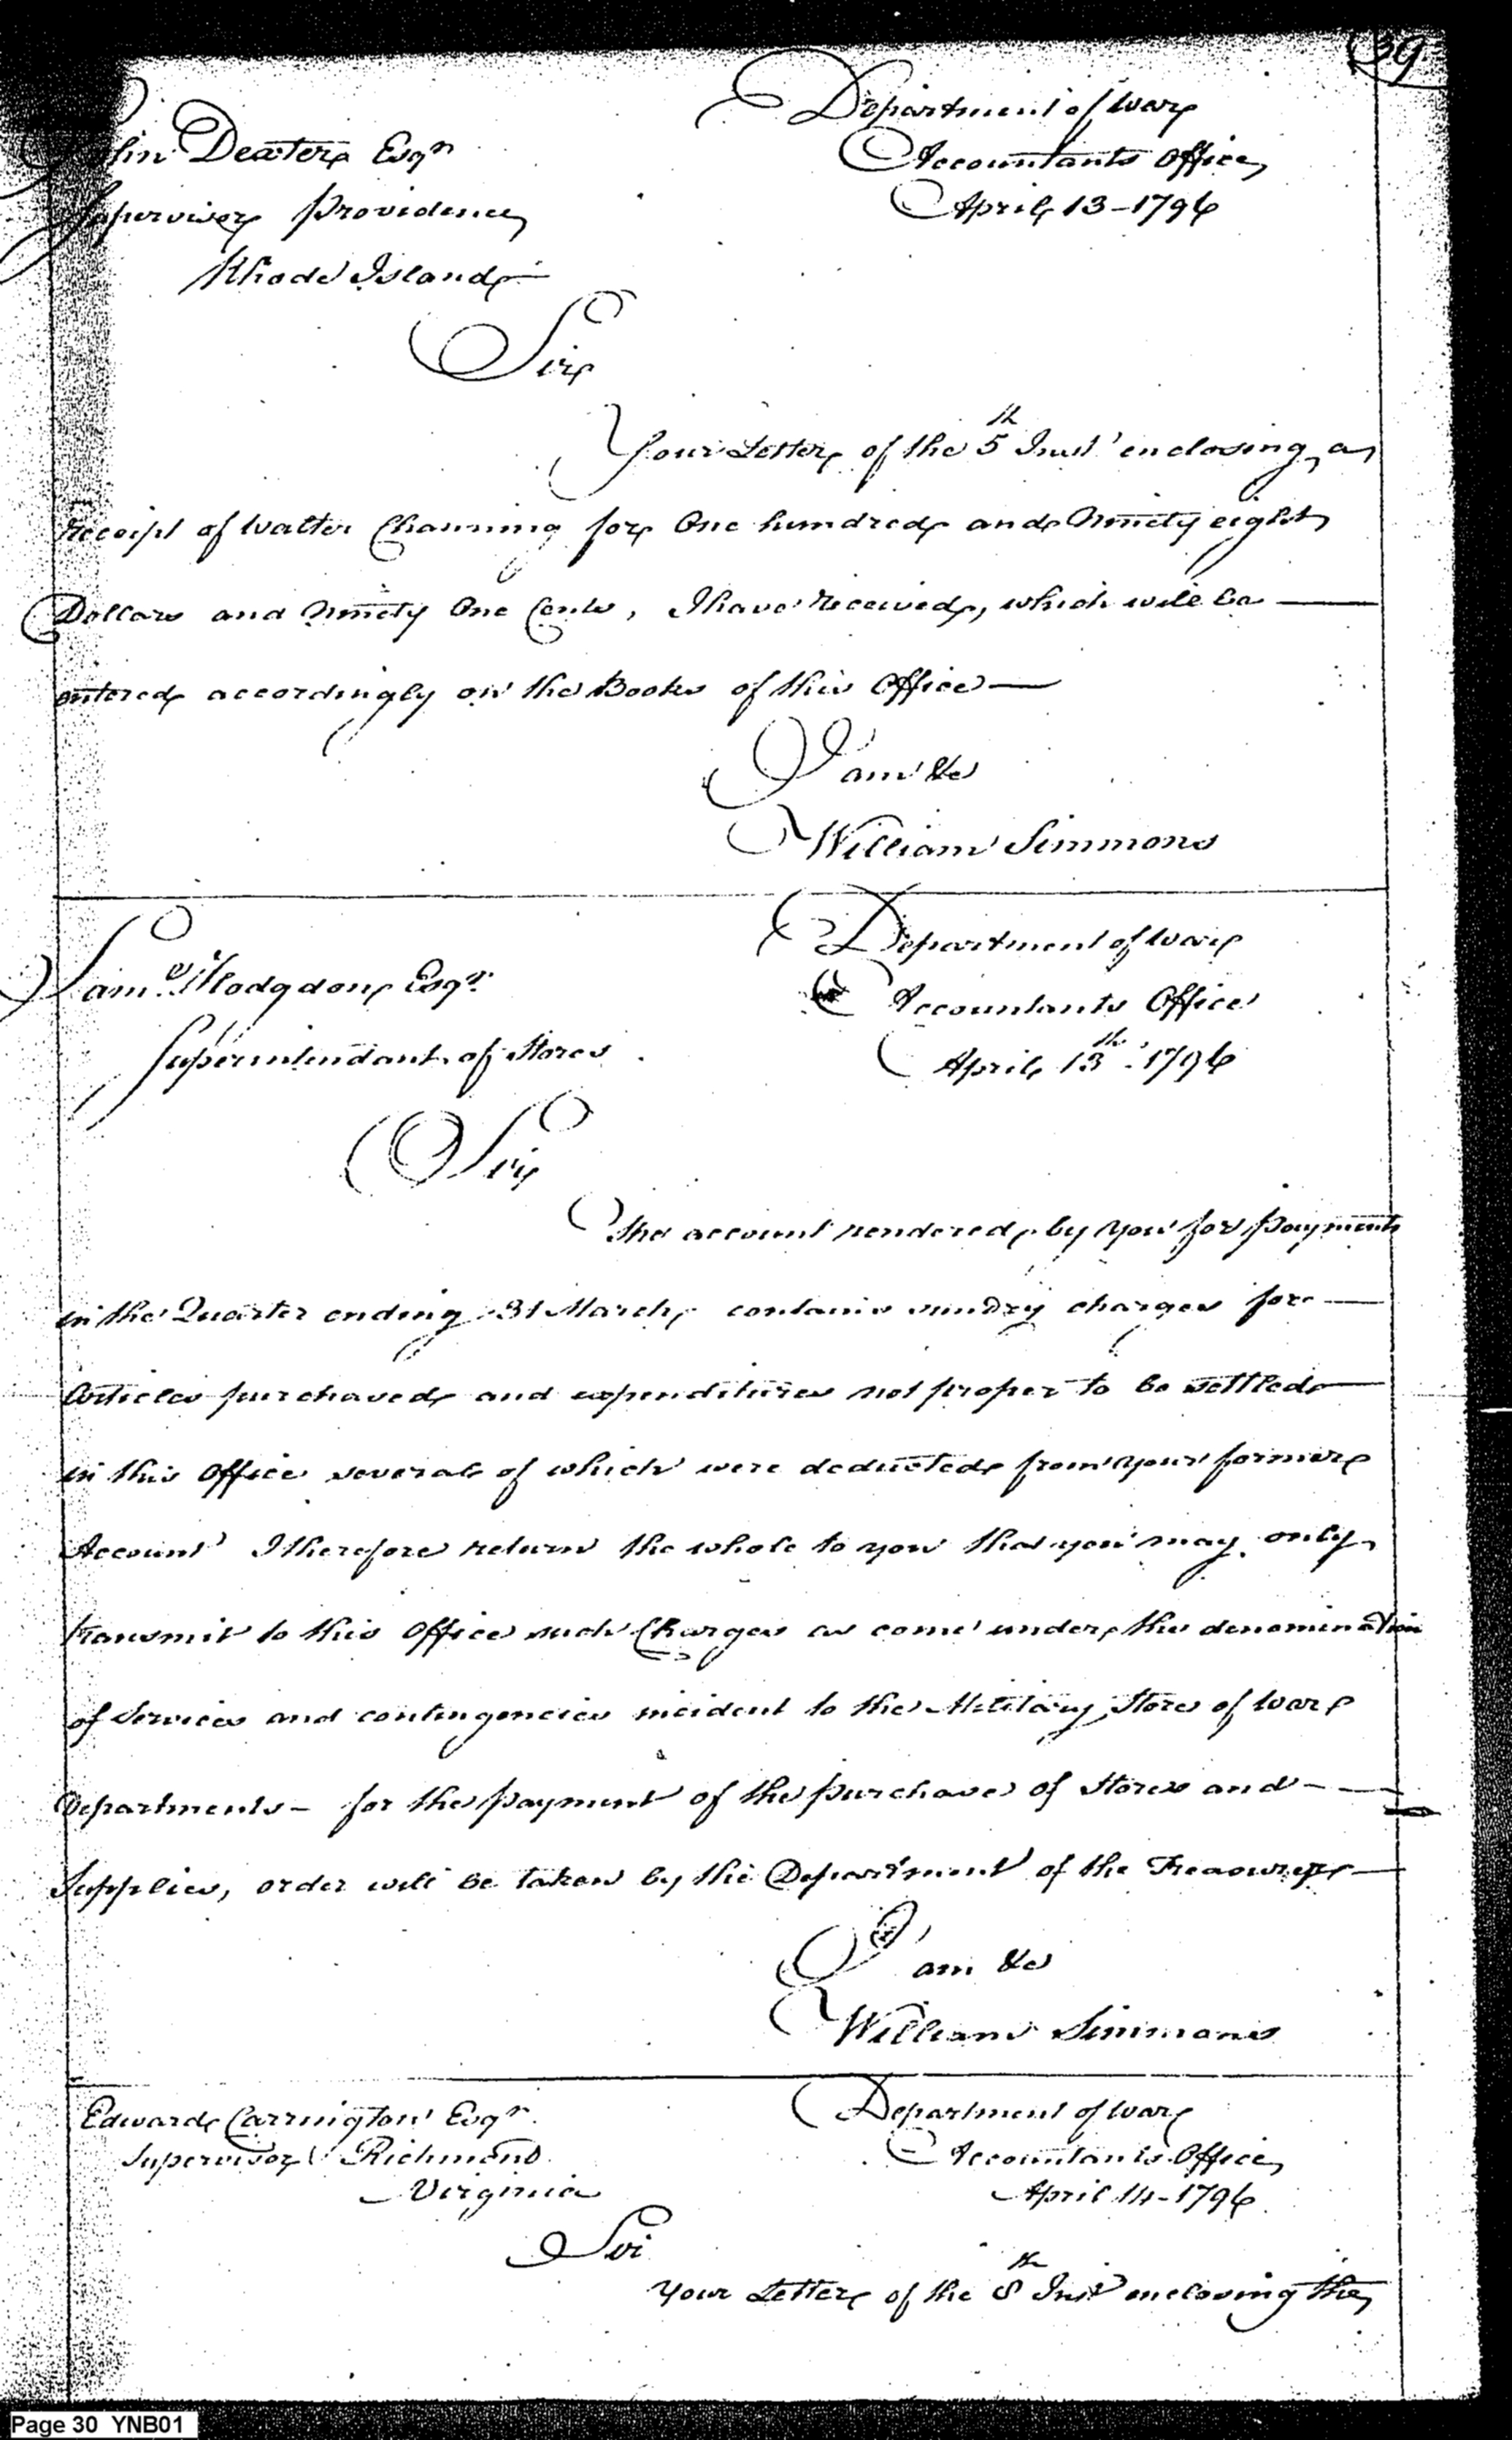 39
Department of War
Accountants Office
April 13-1796
John Dexter Esqr
Supervisor Providence
Rhode Island
Sir
Your Letter of the 5th Inst enclosing a
receipt of Walter Channing for One hundred and Ninety eight
Dollars and Ninety One Cents, I have received, which will be
entered accordingly on the Books of this Office
I am &c
William Simmons
Department of War
Accountants Office
April 13th 1796
Saml Hodgdon Esqr.
Superintendant of Stores
Sir
The account rendered by you for payments
in the Quarter ending 31 March, contains sundry charges for
Articles purchased and expenditures not proper to be settled
in this Office several of which were deducted from your former
Account I therefore return the whole to you that you may only
transmit to this Office such Charges as come under the denomination
of Services and contingencies incident to the Military Store of War
Departments - for the payment of the purchase of Stores and
Supplies, order will be taken by the Department of the Treasury
I am &c
William Simmons
Edward Carrington Esqr.
Supervisor Richmond
Virginia
Department of War
Accountants Office
April 14-1796
Sir
Your Letter of the 8th Inst enclosing the
Page 30 YNB01